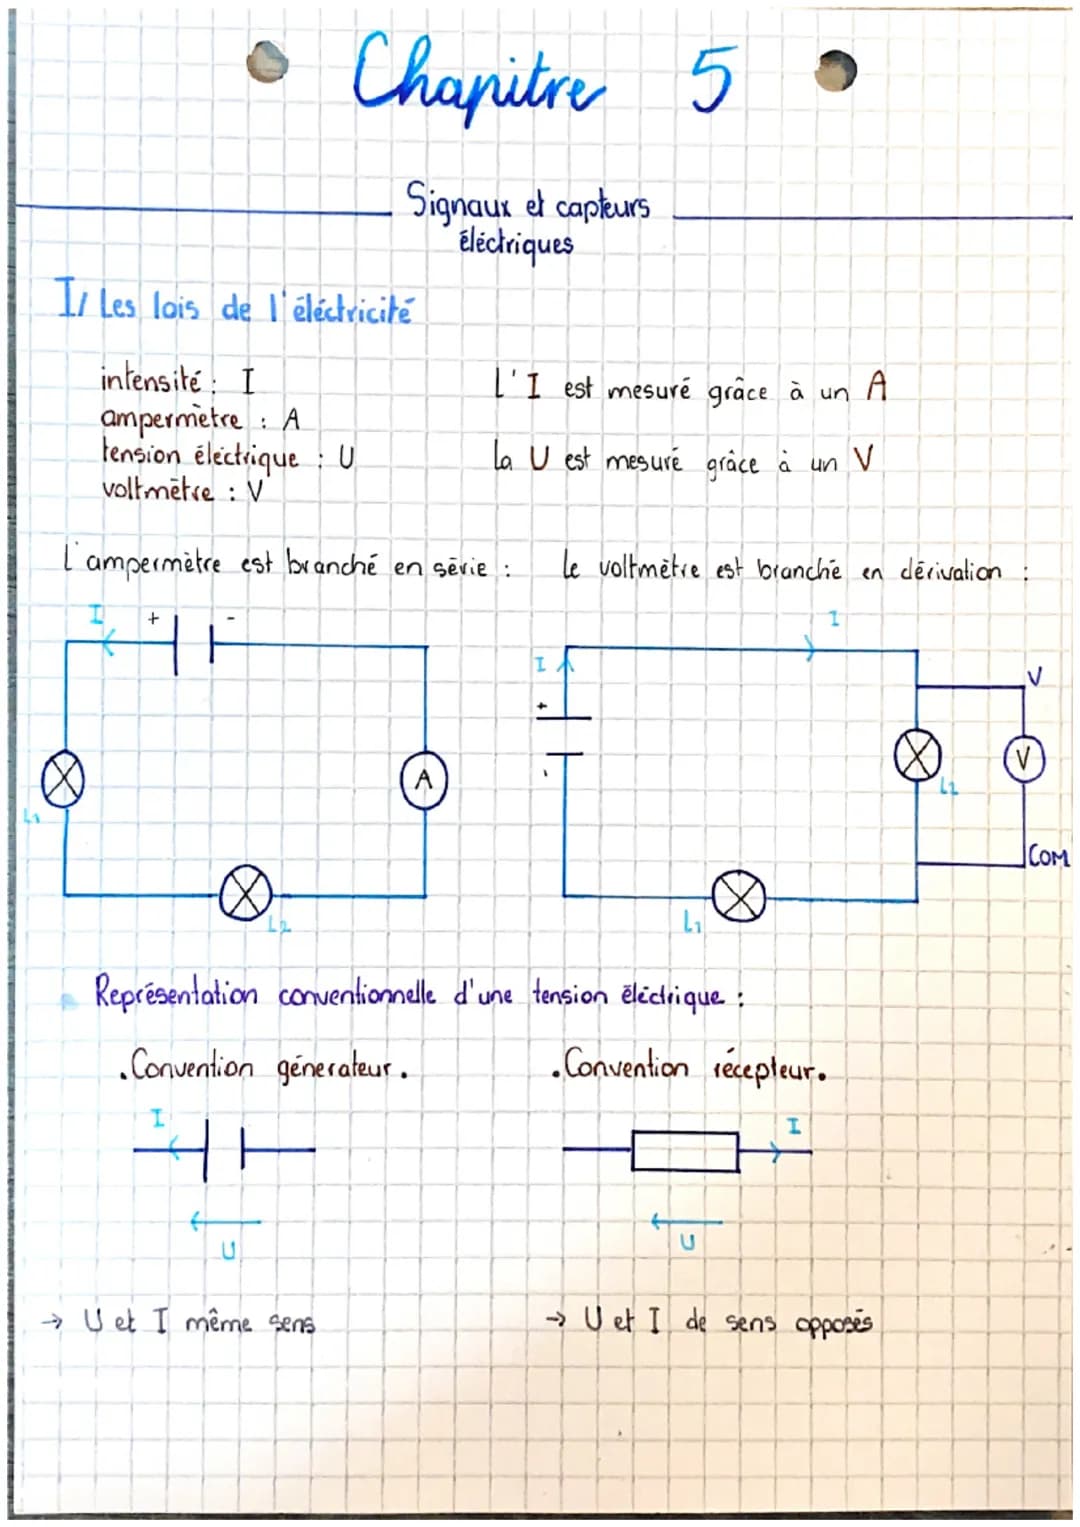 Chapitre 5
Signaux et capteurs
éléctriques
I/ Les lois de l'éléctricité
intensité : I
ampermètre : A
tension éléctrique : U
voltmètre : V
L'I est mesuré grâce à un A
la U est mesuré grâce à un V
L'ampermètre est branché en série :
le voltmètre est branché en dérivation :
I + -
A
L1
L2
I
I
+
-
V
V
L2
COM
L1
Représentation conventionnelle d'une tension éléctrique :
. Convention génerateur .
. Convention récepteur .
I
U
I
U
→ U et I même sens
→ U et I de sens opposés